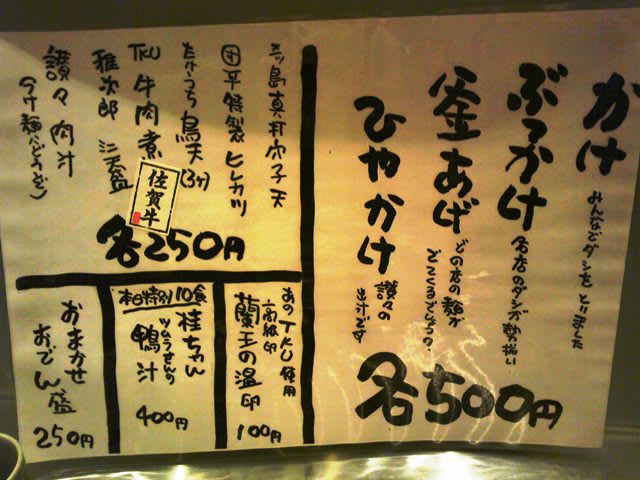 かけ
みんなでダシをとりました
ぶっかけ
各店のダシが勢揃い
釜あげ
どの店の麺が
でてくるでしょうか
ひやかけ
讃々の
出汁です
各500円
三ッ島真打穴子天
平特製ヒレカツ
たけうち鳥天(3ヶ)
TKU牛肉煮
佐賀牛
雅次郎 三天盛
讃々肉汁
(つけ麺にどうぞ)
各250円
あのTKU使用
高級卵
蘭王の温卵
100円
本日特別10食
桂ちゃん
鴨汁
400円
おまかせ
おでん盛
250円